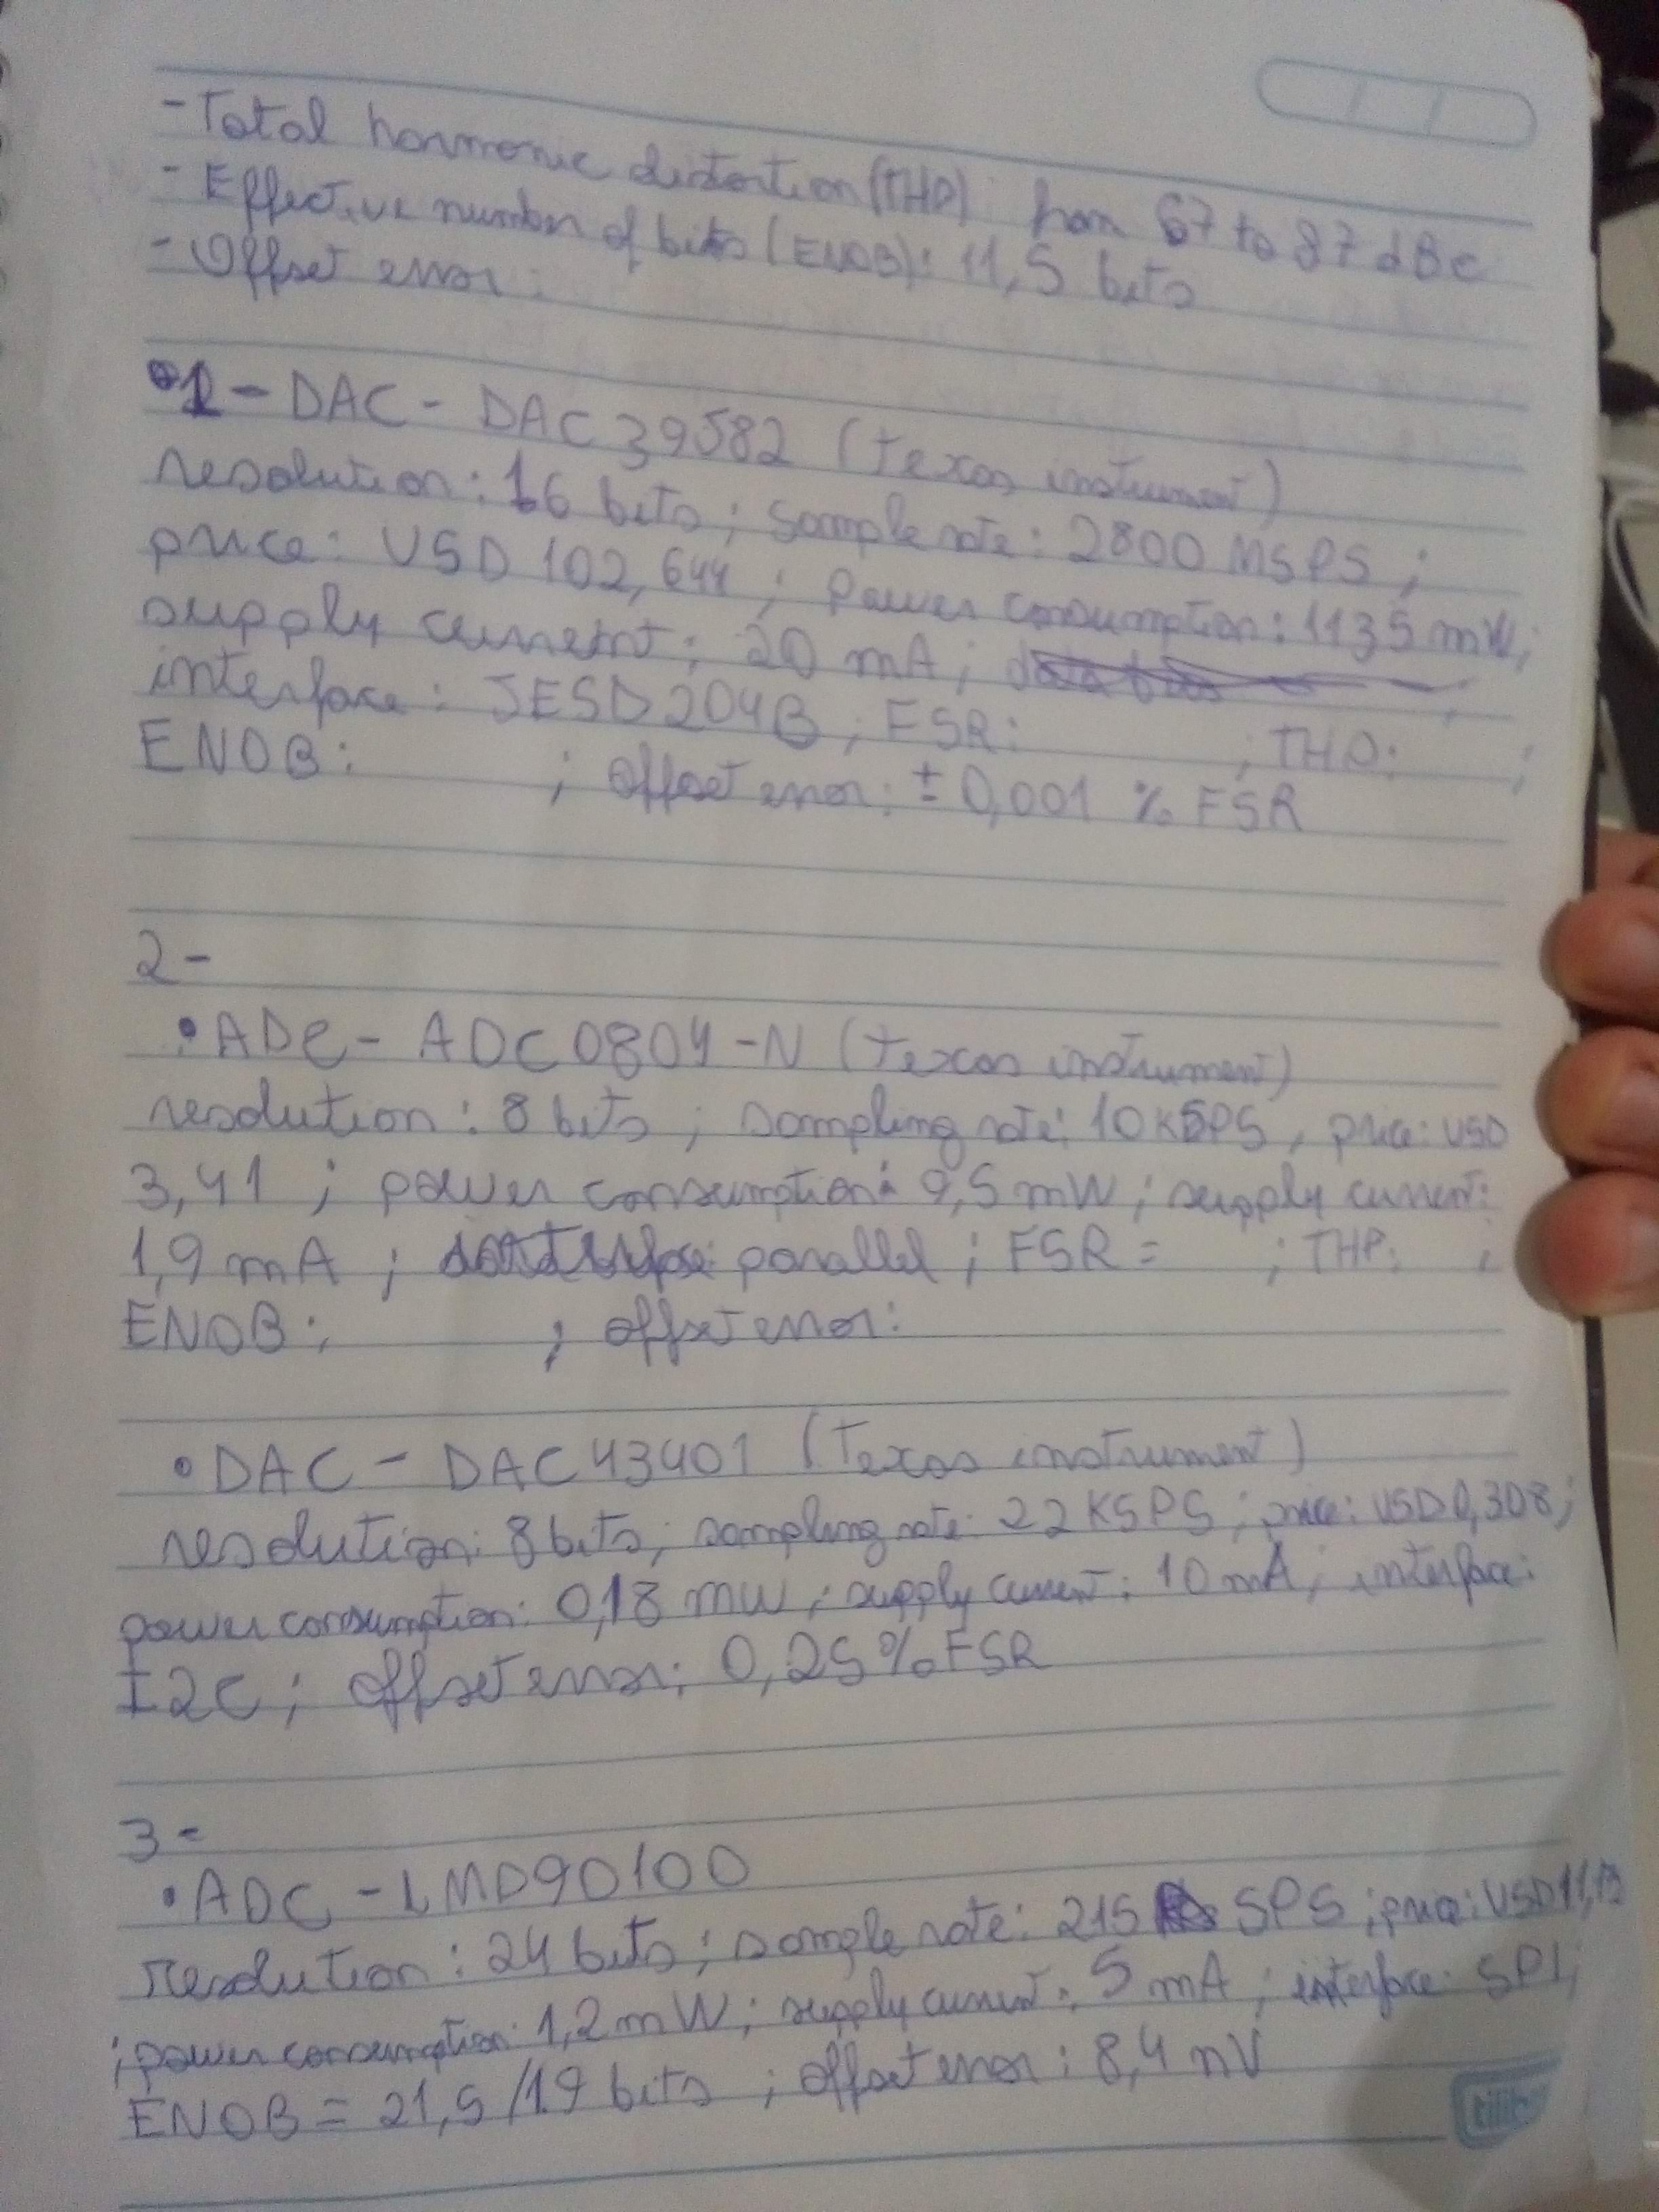 - Total harmonic distortion (THD) from 67 to 87 dBc
- Effective number of bits (ENOB): 11,5 bits
- Offset error:
1 - DAC - DAC39J82 (texas instrument)
resolution: 16 bits; sample rate: 2800 MSPS;
price: USD 102,644; power consumption: 1135 mW;
supply current: 20 mA;
interface: JESD204B; FSR: ; THD: ;
ENOB: ; offset error: ± 0,001 % FSR
2 -
• ADC - ADC0804-N (texas instrument)
resolution: 8 bits; sampling rate: 10 KSPS, price: USD
3,41; power consumption: 9,5 mW; supply current:
1,9 mA; parallel; FSR = ; THD: ;
ENOB: ; offset error:
• DAC - DAC43401 (Texas instrument)
resolution: 8 bits; sampling rate: 22 KSPS; price: USD 0,308;
power consumption: 0,18 mW; supply current: 10 mA; interface:
I2C; offset error: 0,25 % FSR
3 -
• ADC - LMP90100
resolution: 24 bits; sample rate: 215 SPS; price: USD
; power consumption: 1,2 mW; supply current: 5 mA; interface: SPI;
ENOB = 21,5/19 bits; offset error: 8,4 nV